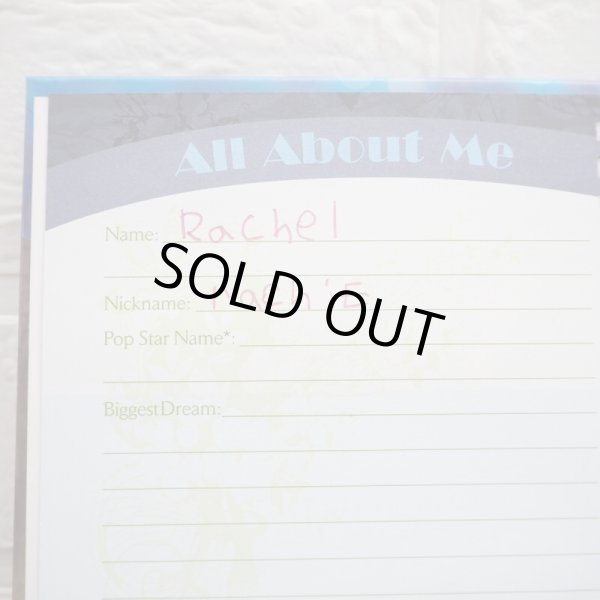 All About Me
Name: Rachel
Nickname:
SOLD OUT
Pop Star Name*:
Biggest Dream: